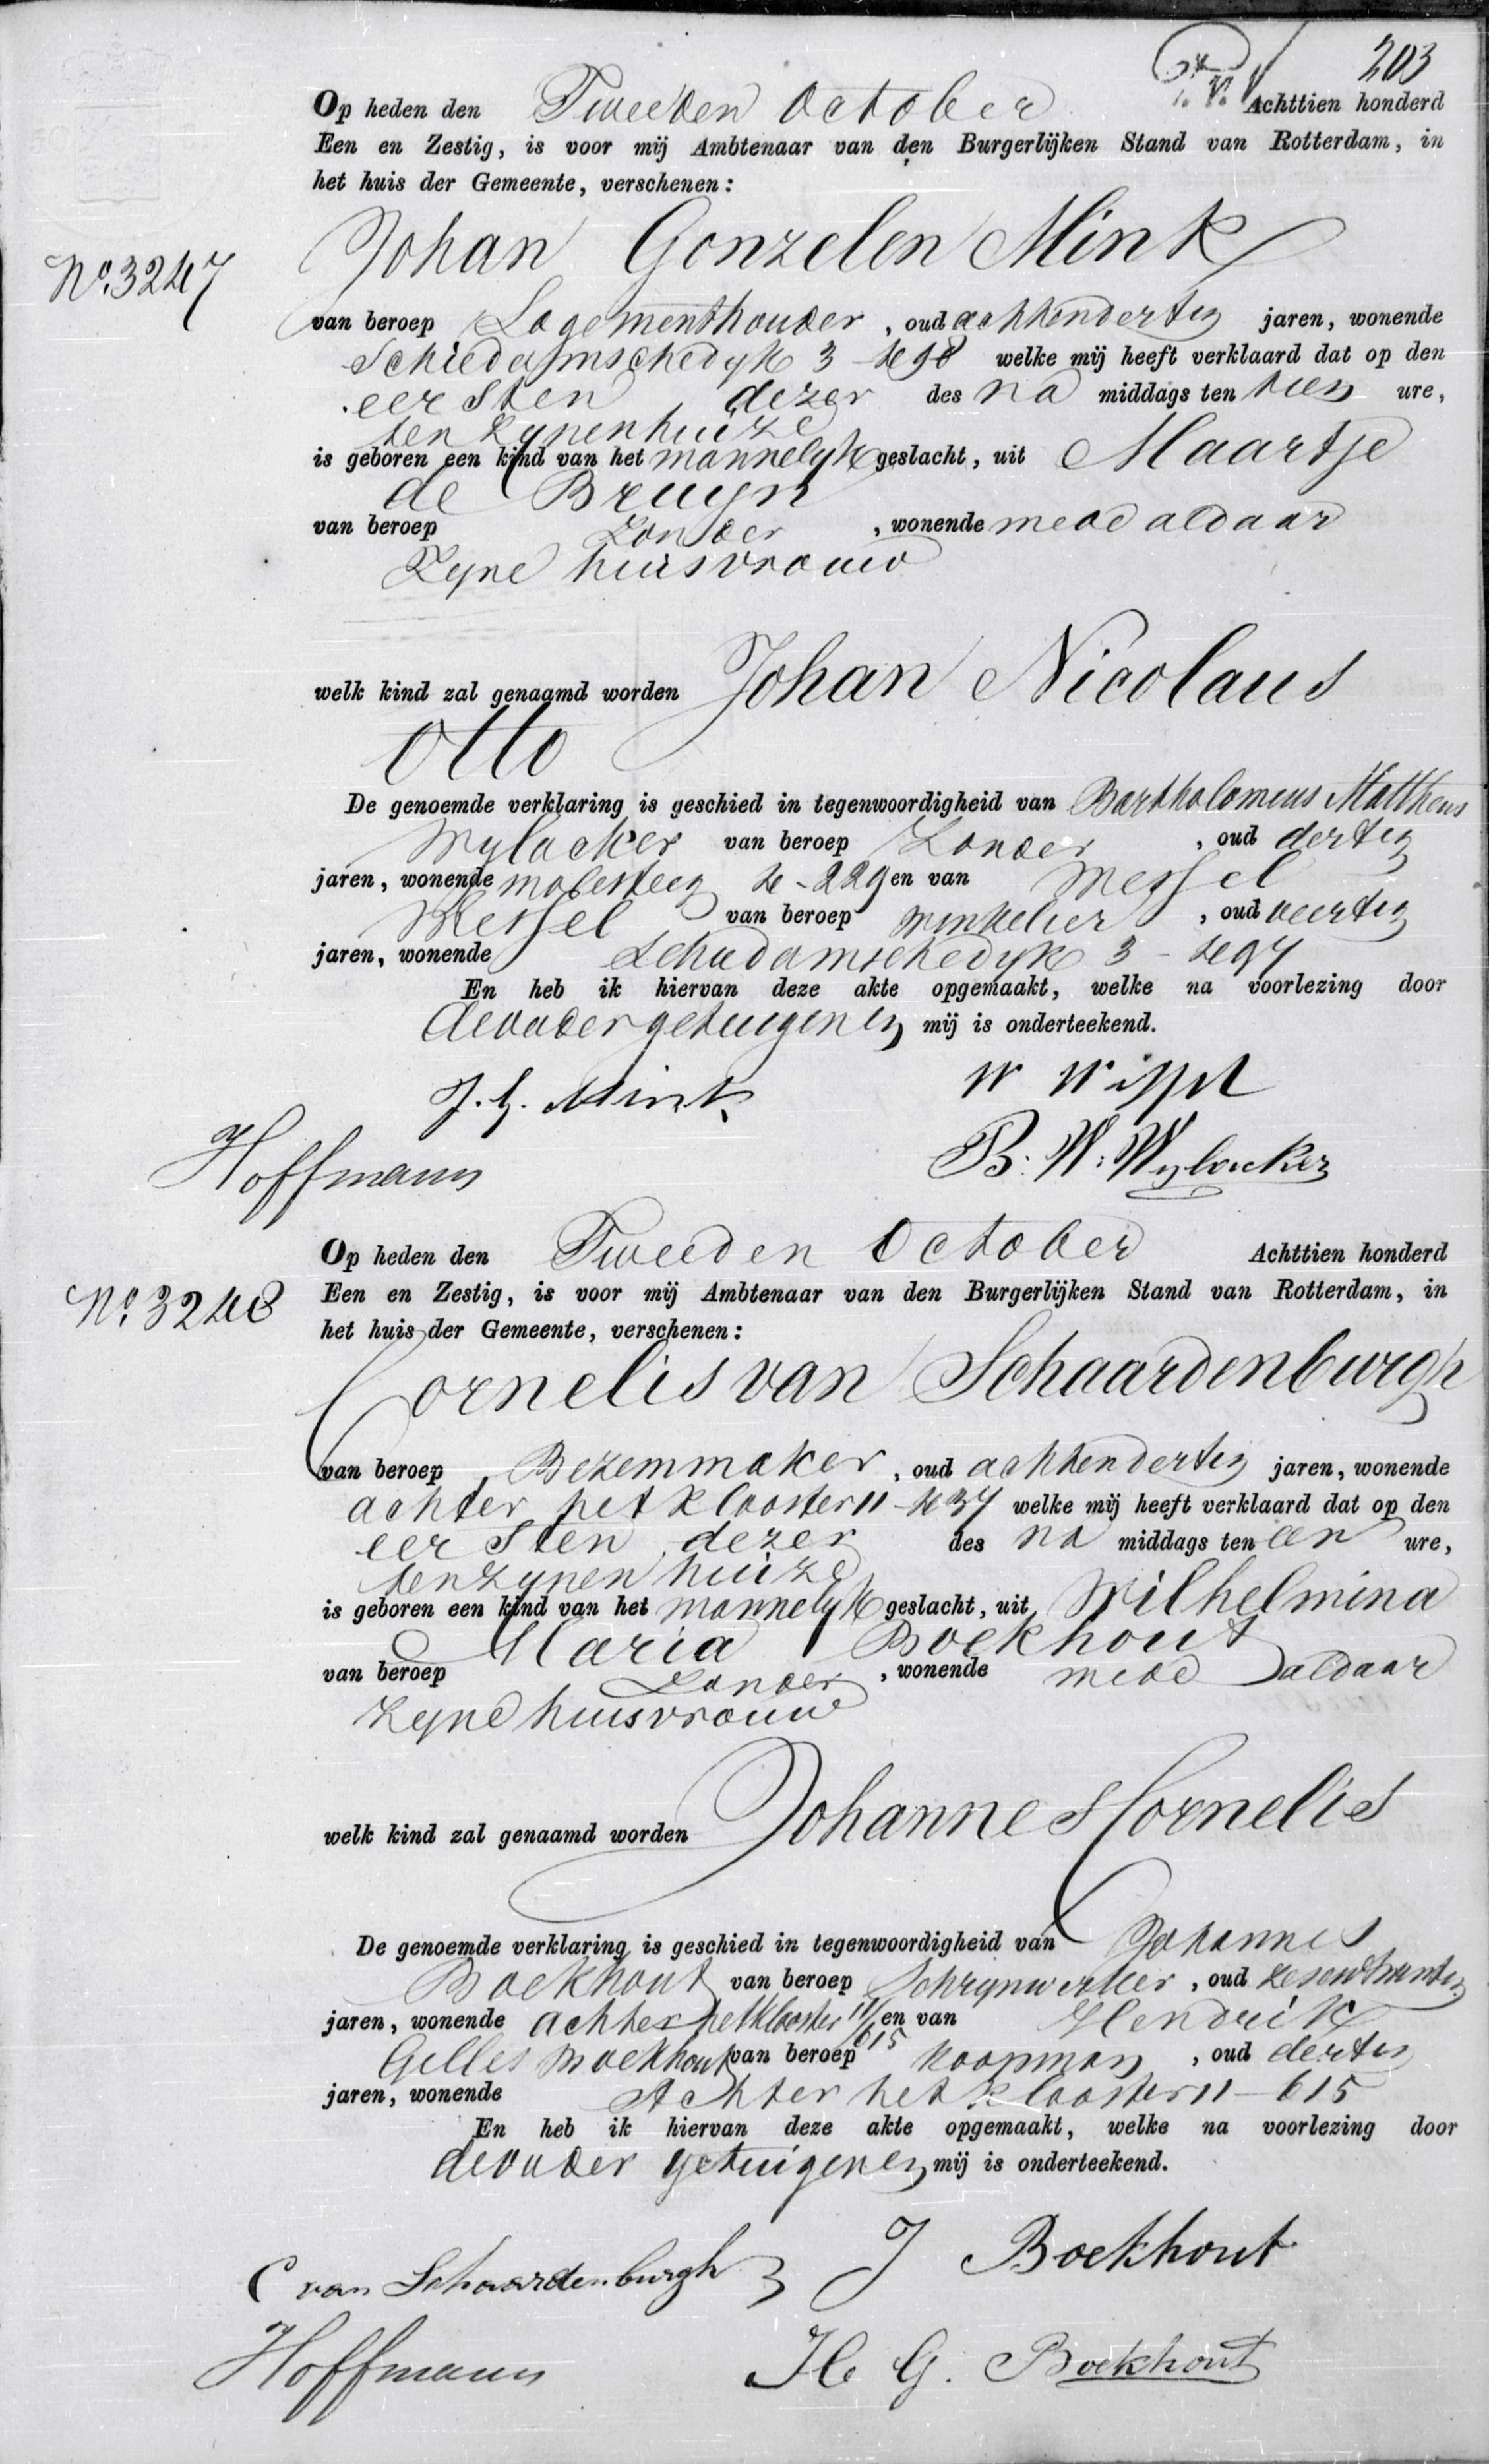 203
Op heden den Tweeden October Achttien honderd
Een en Zestig, is voor mij Ambtenaar van den Burgerlijken Stand van Rotterdam, in
het huis der Gemeente, verschenen:
Johan Gonzelen Mink
No. 3247
van beroep Logementhouder, oud achtendertig jaren, wonende
Schiedamschedyk 3 - welke mij heeft verklaard dat op den
eersten dezer des na middags ten tien ure,
ten zynen huize
is geboren een kind van het mannelyk geslacht, uit Maartje
de Bruyn
van beroep Zonder, wonende mede aldaar
Zyne huisvrouw
welk kind zal genaamd worden Johan Nicolaus
Otto
De genoemde verklaring is geschied in tegenwoordigheid van Bartholomeus Mattheus
Wylacker van beroep Zonder, oud dertig
jaren, wonende 229 en van Wessel
Wessel van beroep Winkelier, oud veertig
jaren, wonende Schiedamschedyk 3 -
En heb ik hiervan deze akte opgemaakt, welke na voorlezing door
de vader getuigen en mij is onderteekend.
J. G. Mink W Wessel
Hoffmann B. M. Wylacker
Op heden den Tweeden October Achttien honderd
No. 3248 Een en Zestig, is voor mij Ambtenaar van den Burgerlijken Stand van Rotterdam, in
het huis der Gemeente, verschenen:
Cornelis van Schaardenburgh
van beroep Bezemmaker, oud achtendertig jaren, wonende
achter het Klooster 11 - 437 welke mij heeft verklaard dat op den
eersten dezer des na middags ten een ure,
ten zynen huize
is geboren een kind van het mannelyk geslacht, uit Wilhelmina
Maria Boekhout
van beroep Zonder, wonende mede aldaar
Zyne huisvrouw
welk kind zal genaamd worden Johannes Cornelis
De genoemde verklaring is geschied in tegenwoordigheid van Johannes
Boekhout van beroep Schrynwerker, oud zesentwintig
jaren, wonende achter het Klooster 11/615 en van Hendrik
Gilles Boekhout van beroep Koopman, oud dertig
jaren, wonende Achter het Klooster 11 - 615
En heb ik hiervan deze akte opgemaakt, welke na voorlezing door
de vader getuigen en mij is onderteekend.
C van Schaardenburgh J Boekhout
Hoffmann H G. Boekhout